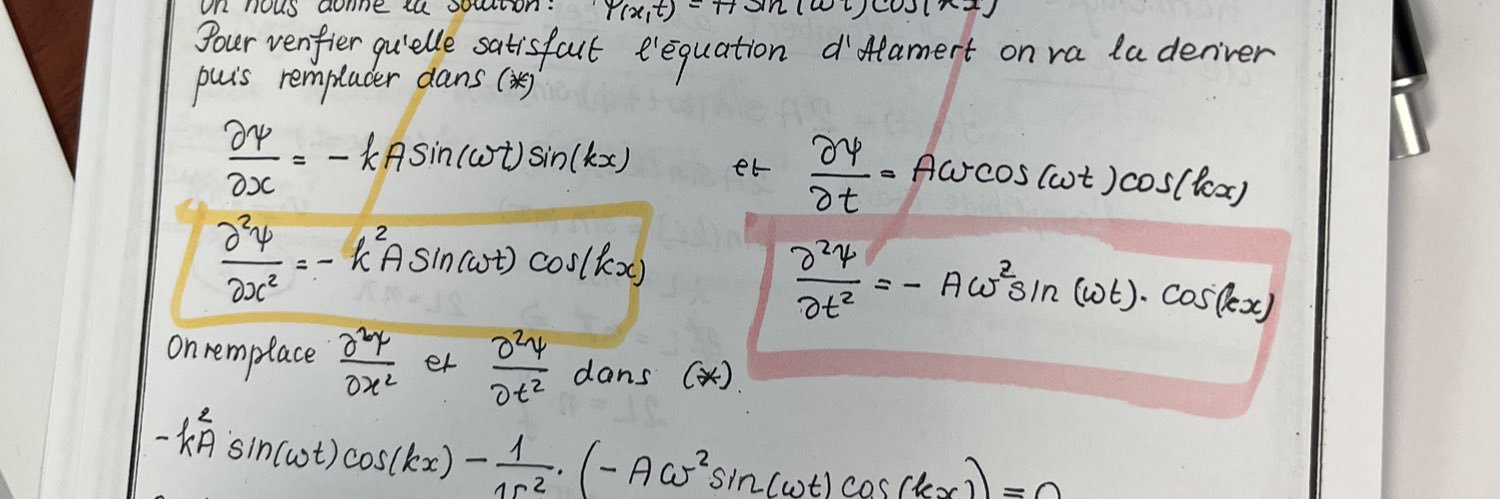 On nous donne la solution: Ψ(x,t) = A sin(ωt) cos(kx)
Pour verifier qu'elle satisfait l'équation d'Alamert on va la deriver
puis remplacer dans (*)
∂Ψ/∂x = - kA sin(ωt) sin(kx) et ∂Ψ/∂t = Aω cos(ωt) cos(kx)
∂²Ψ/∂x² = - k²A sin(ωt) cos(kx) ∂²Ψ/∂t² = - Aω² sin(ωt). cos(kx)
On remplace ∂²Ψ/∂x² et ∂²Ψ/∂t² dans (*).
-k²A sin(ωt) cos(kx) - 1/v² . (- Aω² sin(ωt) cos(kx)) = 0